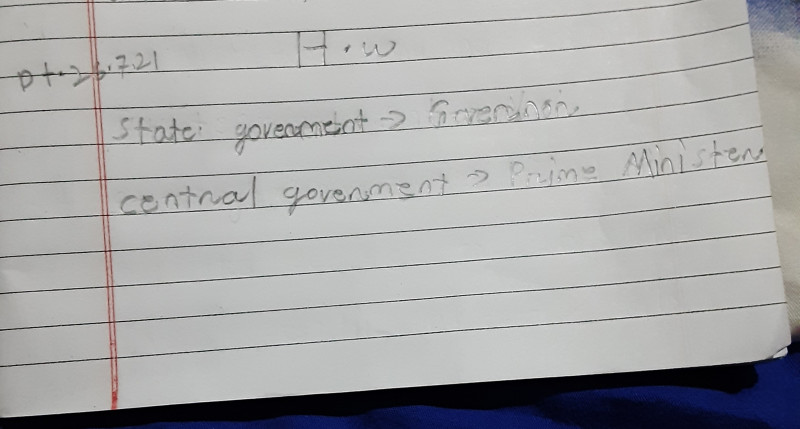 H.W
Dt.26.7.21
State govenment → Governor
central govenment → Prime Minister